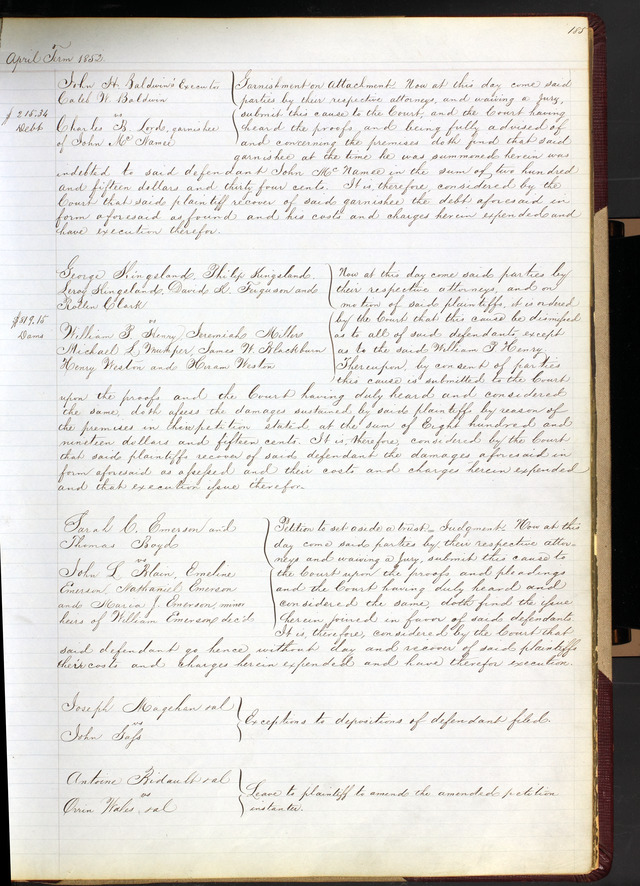 185
April Term 1852
John H. Baldwin's Executor
Caleb W. Baldwin
vs
Charles B. Lord, garnishee
of John McNamee
$215.34
Debt
Garnishment on Attachment. Now at this day come said
parties by their respective attorneys, and waiving a Jury,
submit this cause to the Court, and the Court having
heard the proofs and being fully advised of
and concerning the premises doth find that said
garnishee at the time he was summoned herein was
indebted to said defendant John McNamee in the sum of two hundred
and fifteen dollars and thirty four cents. It is, therefore, considered by the
Court that said plaintiff recover of said garnishee the debt aforesaid in
form aforesaid as found and his costs and charges herein expended and
have execution therefor.
George Kingsland, Philip Kingsland,
Leroy Kingsland, David K. Ferguson and
Rollen Clark
vs
$819.15
Dams
William P. Henry, Jeremiah Millers
Michael L. James W. Blackburn
Henry Weston and Hiram Weston
Now at this day come said parties by
their respective attorneys, and on
motion of said plaintiffs, it is ordered
by the Court that this cause be dismissed
as to all of said defendants, except
as to the said William P. Henry.
Thereupon, by consent of parties
this cause is submitted to the Court
upon the proofs and the Court having duly heard and considered
the same, doth assess the damages sustained by said plaintiffs by reason of
the premises in their petition stated at the sum of Eight hundred and
nineteen dollars and fifteen cents. It is, therefore, considered by the Court
that said plaintiffs recover of said defendant the damages aforesaid in
form aforesaid as assessed and their costs and charges herein expended
and that execution issue therefor.
Sarah C. Emerson and
Thomas Boyd
vs
John L. Blain, Emeline
Emerson, Nathaniel Emerson
and Maria J. Emerson, minor
heirs of William Emerson dec'd
Petition to set aside a trust. Judgment. Now at this
day come said parties by their respective attor-
neys and waiving a Jury, submit this cause to
the Court upon the proofs and pleadings
and the Court having duly heard and
considered the same, doth find the issue
herein joined in favor of said defendants.
It is, therefore, considered by the Court that
said defendant go hence without day and recover of said plaintiffs
their costs and charges herein expended and have therefor execution.
Joseph Magehan et al
vs
John Gass
Exceptions to depositions of defendant filed.
Antoine Bidault et al
vs
Orrin Wales, et al
Leave to plaintiff to amend the amended petition
instanter.